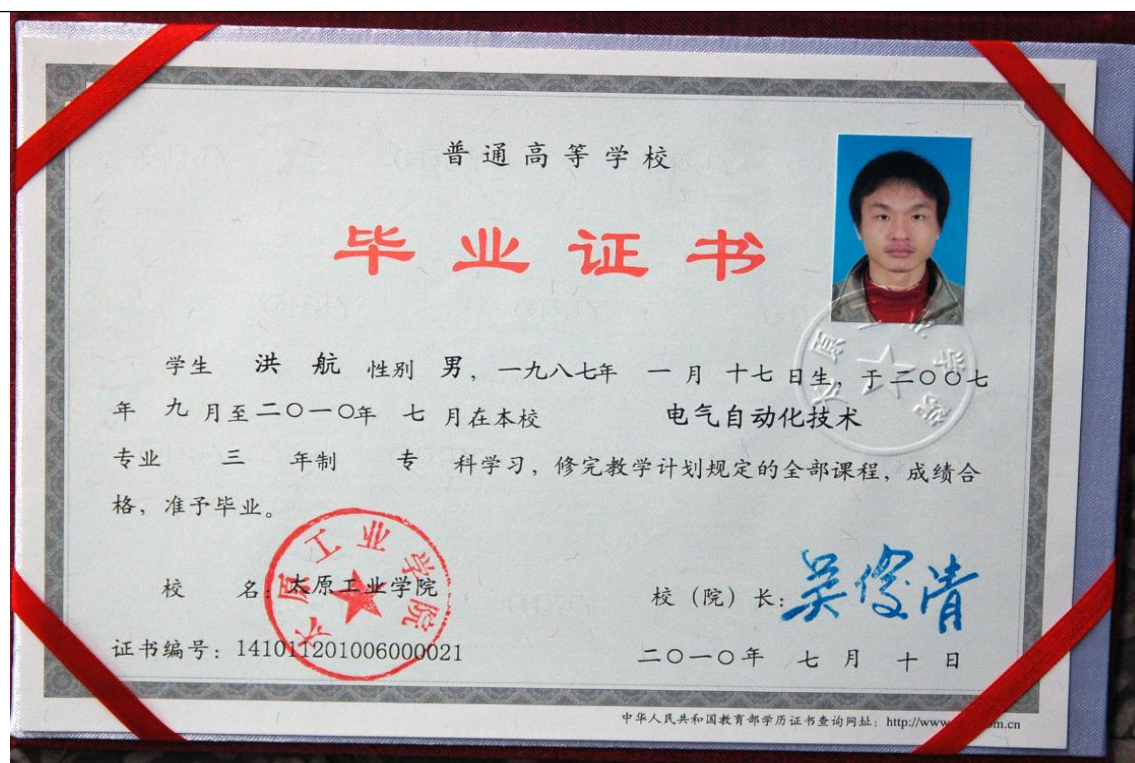 普通高等学校
毕业证书
学生 洪航 性别 男，一九八七年 一 月 十七 日生，于二〇〇七
年 九 月至二〇一〇年 七 月在本校 电气自动化技术
专业 三 年制 专 科学习，修完教学计划规定的全部课程，成绩合
格，准予毕业。
太原工业学院
太原工业学院
校 名：太原工业学院
校（院）长：吴俊清
证书编号：141011201006000021
二〇一〇年 七 月 十 日
中华人民共和国教育部学历证书查询网址：http://www m.cn